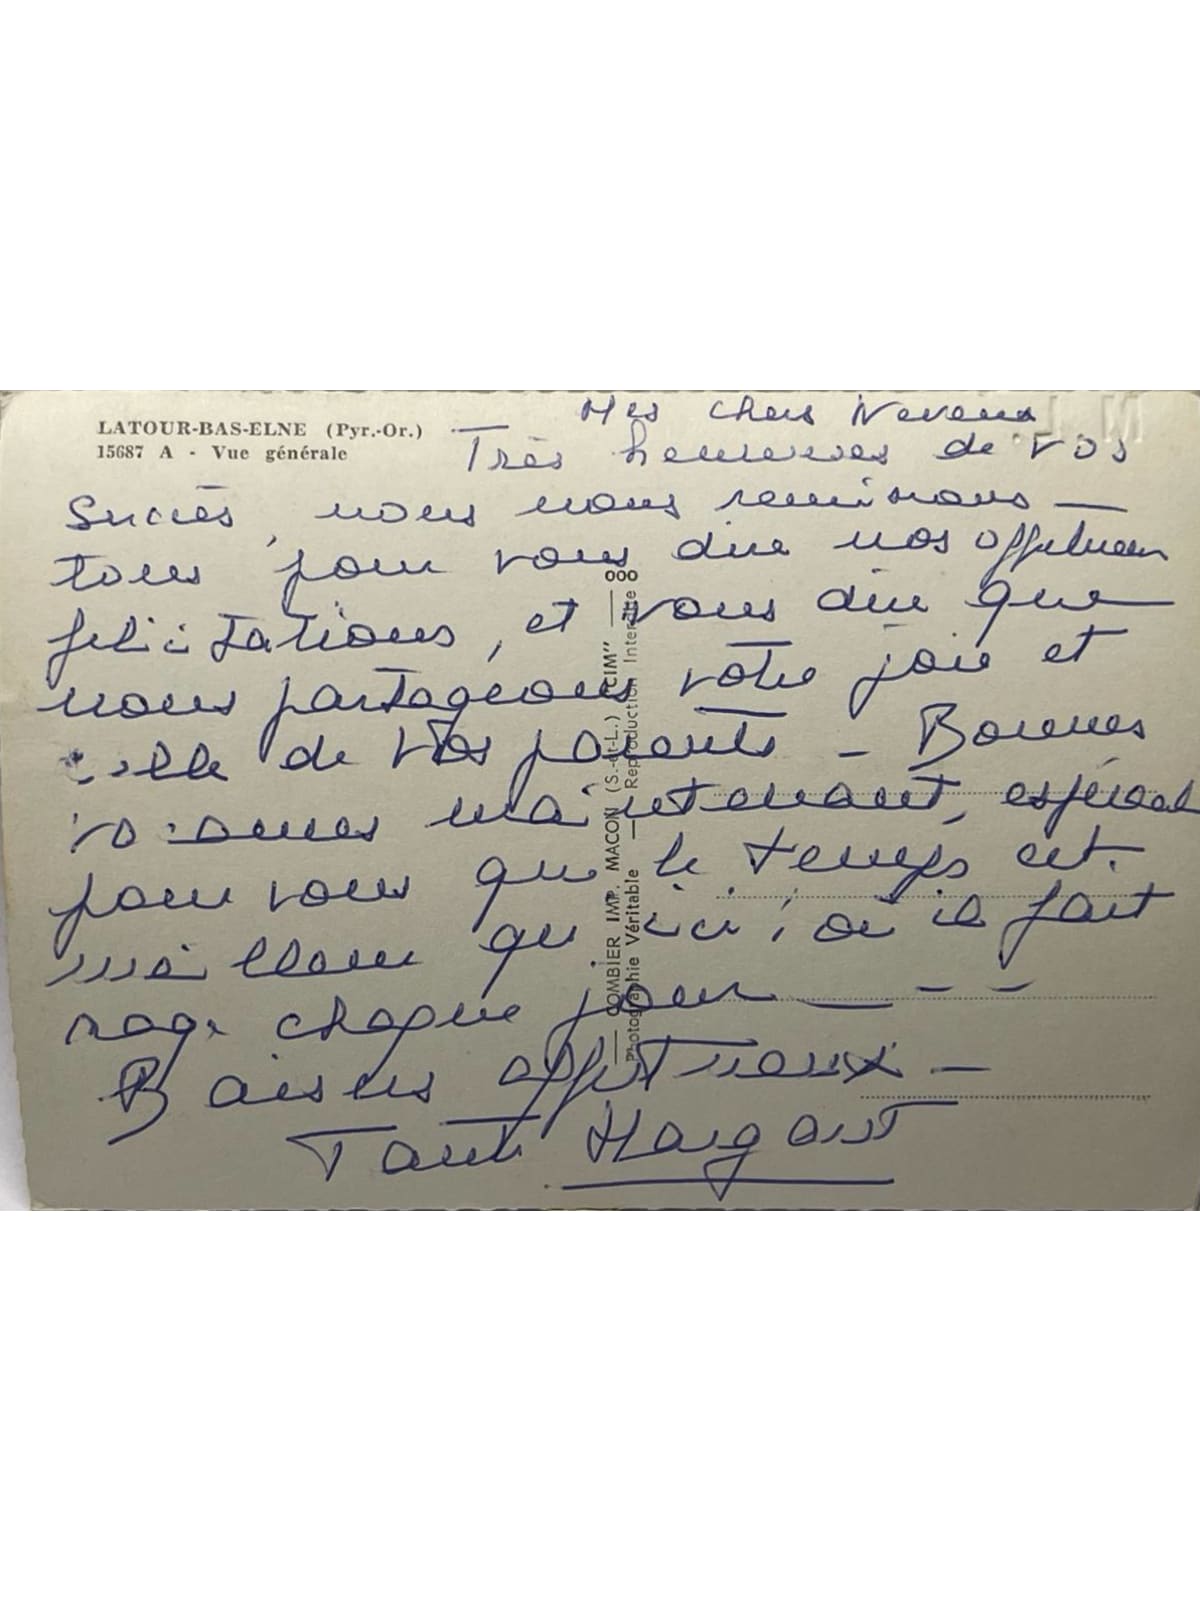 LATOUR-BAS-ELNE (Pyr.-Or.)
15687 A - Vue générale
Mes chers Neveux
Très heureuses de vos
succès, nous nous reunissons
tous pour vous dire nos affectueuses
felicitations, et vous dire que
nous partageons votre joie et
celle de vos parents - Bonnes
vacances maintenant, espérant
pour vous que le temps est
meilleur qu'ici, où il fait
rage chaque jour - - -
Baisers affectueux -
Tante Margot
COMBIER IMP. MACON (S.-et-L.) "CIM"
Photographie Véritable — Reproduction Interdite